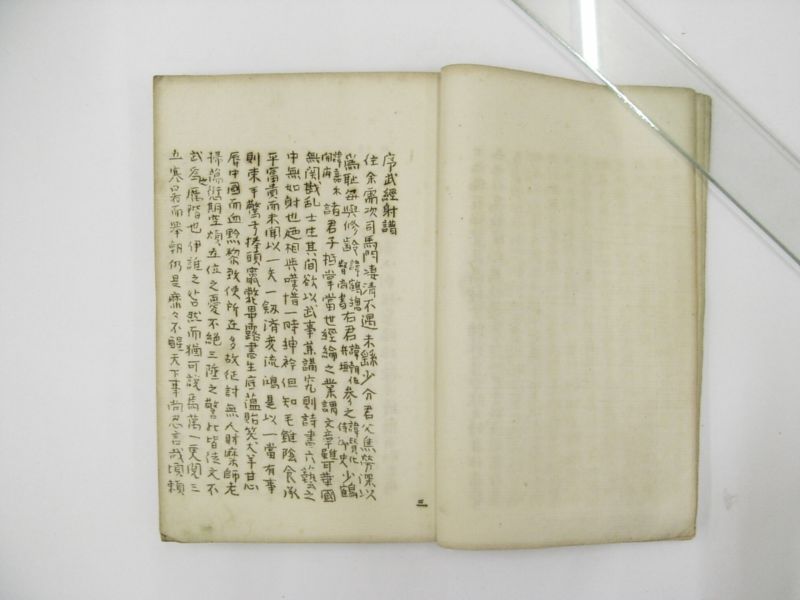 序武經射譜
往余需次司馬門凄清不遇未繇少分君父焦勞深以
爲耻每與修齡諱鶴鳴右君諱朝佐參之諱賢化少鶴
諸君子抵掌當世經綸之業謂文章雖可華國
無関戡乱士生其間欲以武事兼講究則詩書六藝之
中無如射也廼相與嘆惜一時紳衿但知毛雖陰食承
平富貴而未聞以一矢一劔濟变流鴻是以一當有事
則束手驚予捧頭鼠竄畢露書生底蘊貽笑犬羊甘心
辱中國而血黔黎致使所在多故征討無人財糜師老
掃蕩愆期空煩五位之憂不絕三陲之警此皆徒文不
武爲之厲階也伊誰之咎然而猶可說焉萬一更閱三
五寒暑而舉朝仍是糜々不醒天下事尚忍言哉頃賴
三